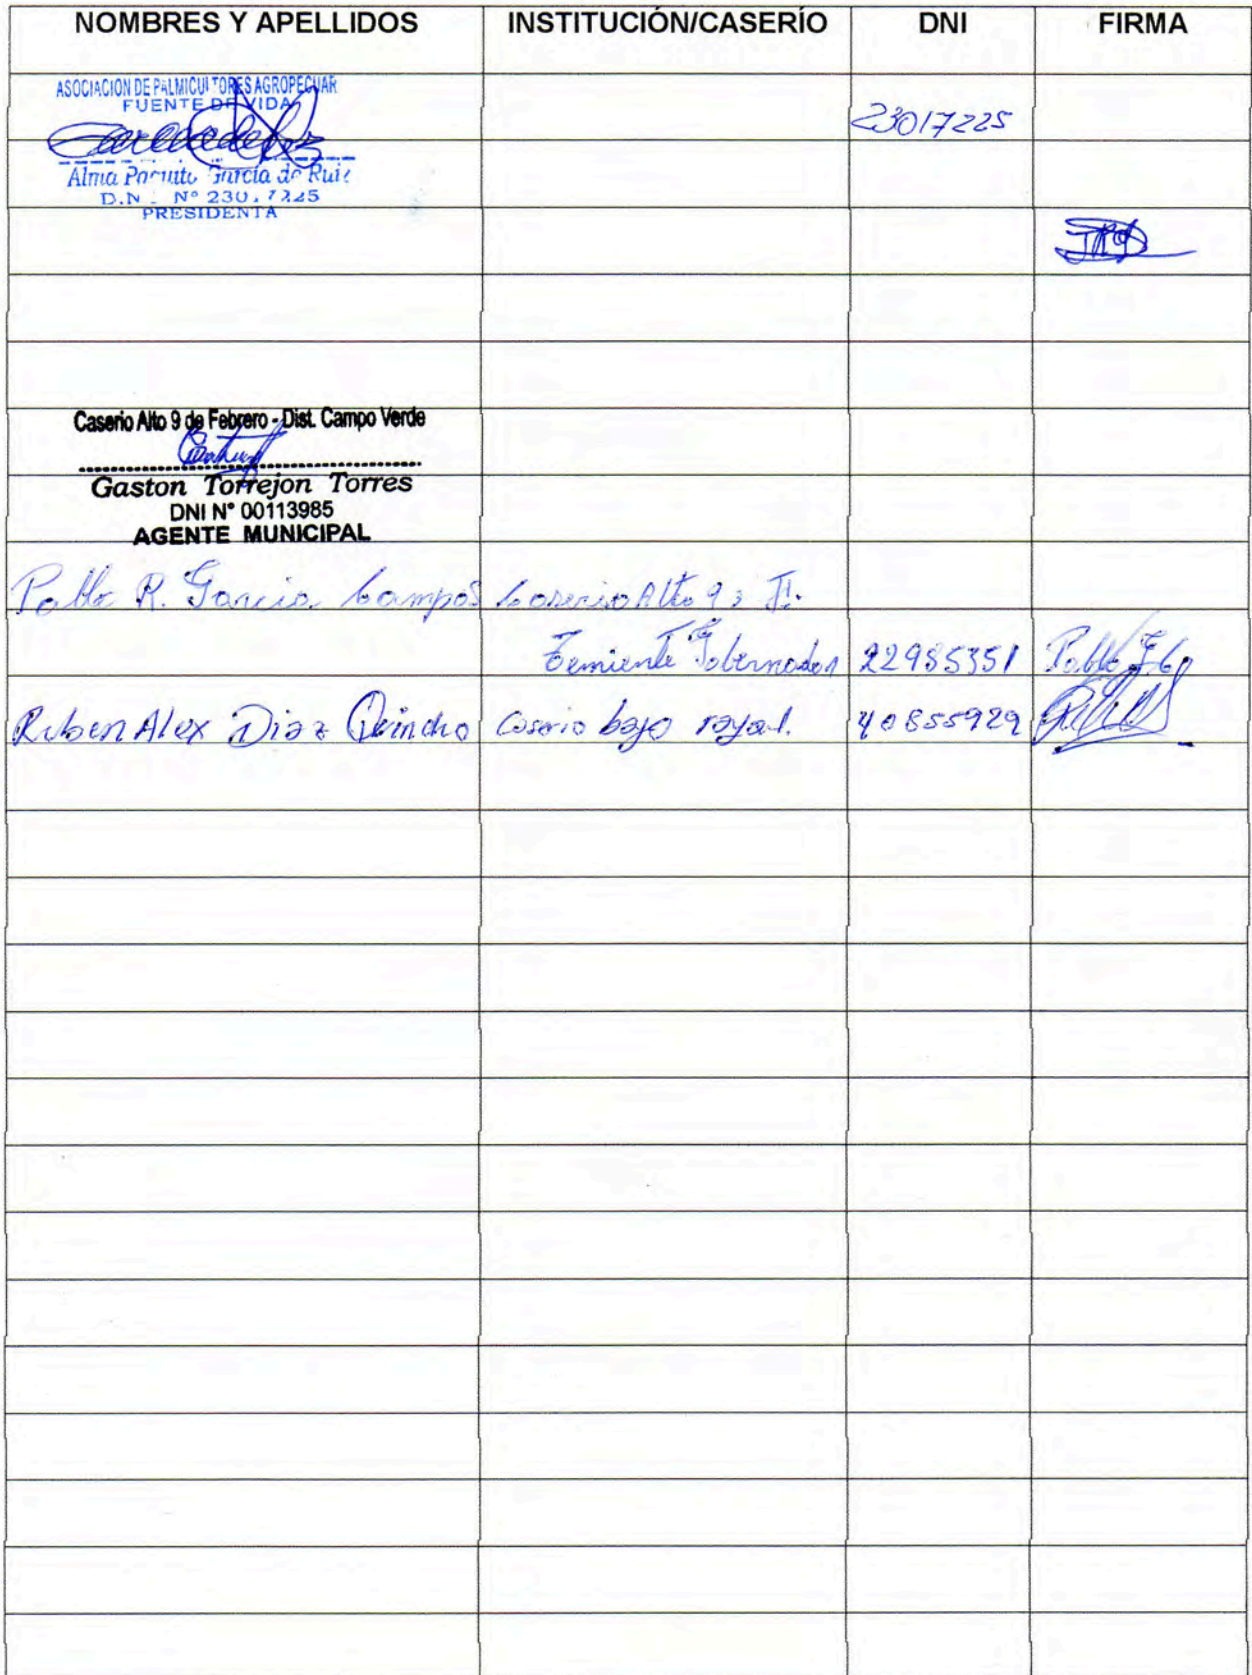 NOMBRES Y APELLIDOS INSTITUCIÓN/CASERÍO DNI FIRMA
ASOCIACION DE PALMICULTORES AGROPECUAR
FUENTE DE VIDA
23017225
Alma García de Ruiz
D.N Nº 230.7225
PRESIDENTA
Caserio Alto 9 de Febrero - Dist. Campo Verde
Gaston Torrejon Torres
DNI N° 00113985
AGENTE MUNICIPAL
Pablo R. Garcia Campos Caserio Alto 9
Teniente Gobernador 22985351 Pablo
Ruben Alex Diaz Quincho Caserio bajo rayal. 40855929